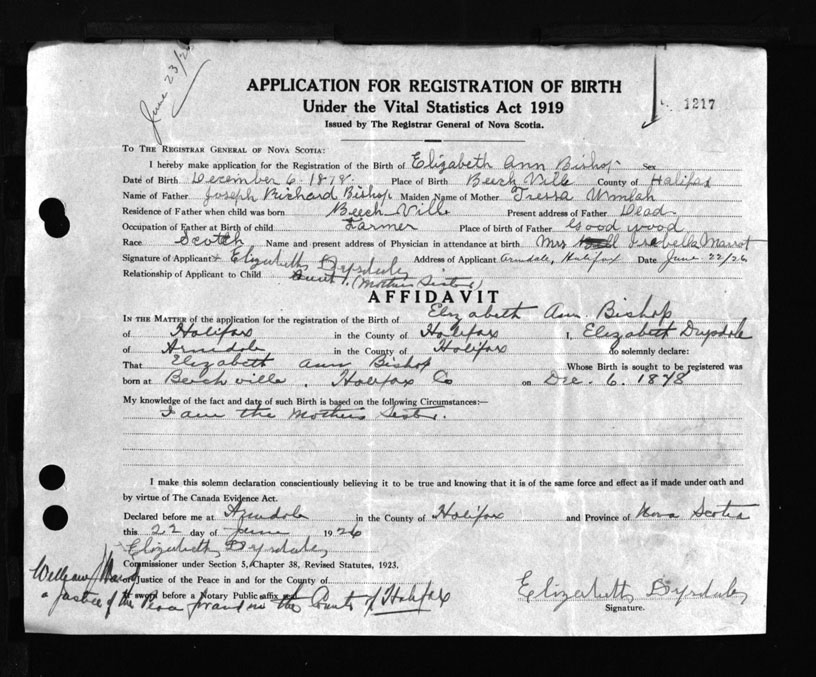 June 23/26
APPLICATION FOR REGISTRATION OF BIRTH
1217
Under the Vital Statistics Act 1919
Issued by The Registrar General of Nova Scotia.
TO THE REGISTRAR GENERAL OF NOVA SCOTIA:
I hereby make application for the Registration of the Birth of Elizabeth Ann Bishop Sex
Date of Birth December 6. 1878. Place of Birth Beech Ville County of Halifax
Name of Father Joseph Richard Bishop Maiden Name of Mother Tressa
Residence of Father when child was born Beech Ville Present address of Father Dead
Occupation of Father at Birth of child Farmer Place of birth of Father Good wood
Race Scotch Name and present address of Physician in attendance at birth Mrs Isabella
Signature of Applicant Elizabeth Drysdale Address of Applicant Armdale, Halifax Date June 22/26
Relationship of Applicant to Child Aunt. (Mothers Sister)
AFFIDAVIT
IN THE MATTER of the application for the registration of Birth of Elizabeth Ann Bishop
of Halifax in the County of Halifax I, Elizabeth Drysdale
of Armdale in the County of Halifax do solemnly declare:
That Elizabeth Ann Bishop Whose Birth is sought to be registered was
born at Beech ville, Halifax Co on Dec. 6. 1878
My knowledge of the fact and date of such Birth is based on the following Circumstances:—
I am the Mothers Sister.
I make this solemn declaration conscientiously believing it to be true and knowing that it is of the same force and effect as if made under oath and
by virtue of The Canada Evidence Act.
Declared before me at Armdale in the County of Halifax and Province of Nova Scotia
this 22 day of June 1926
Elizabeth Drysdale
Commissioner under Section 5, Chapter 38, Revised Statutes, 1923.
William J
or Justice of the Peace in and for the County of
If sword before a Notary Public affix seal
a Justice of the Peace for and in the County of Halifax
Elizabeth Drysdale
Signature.